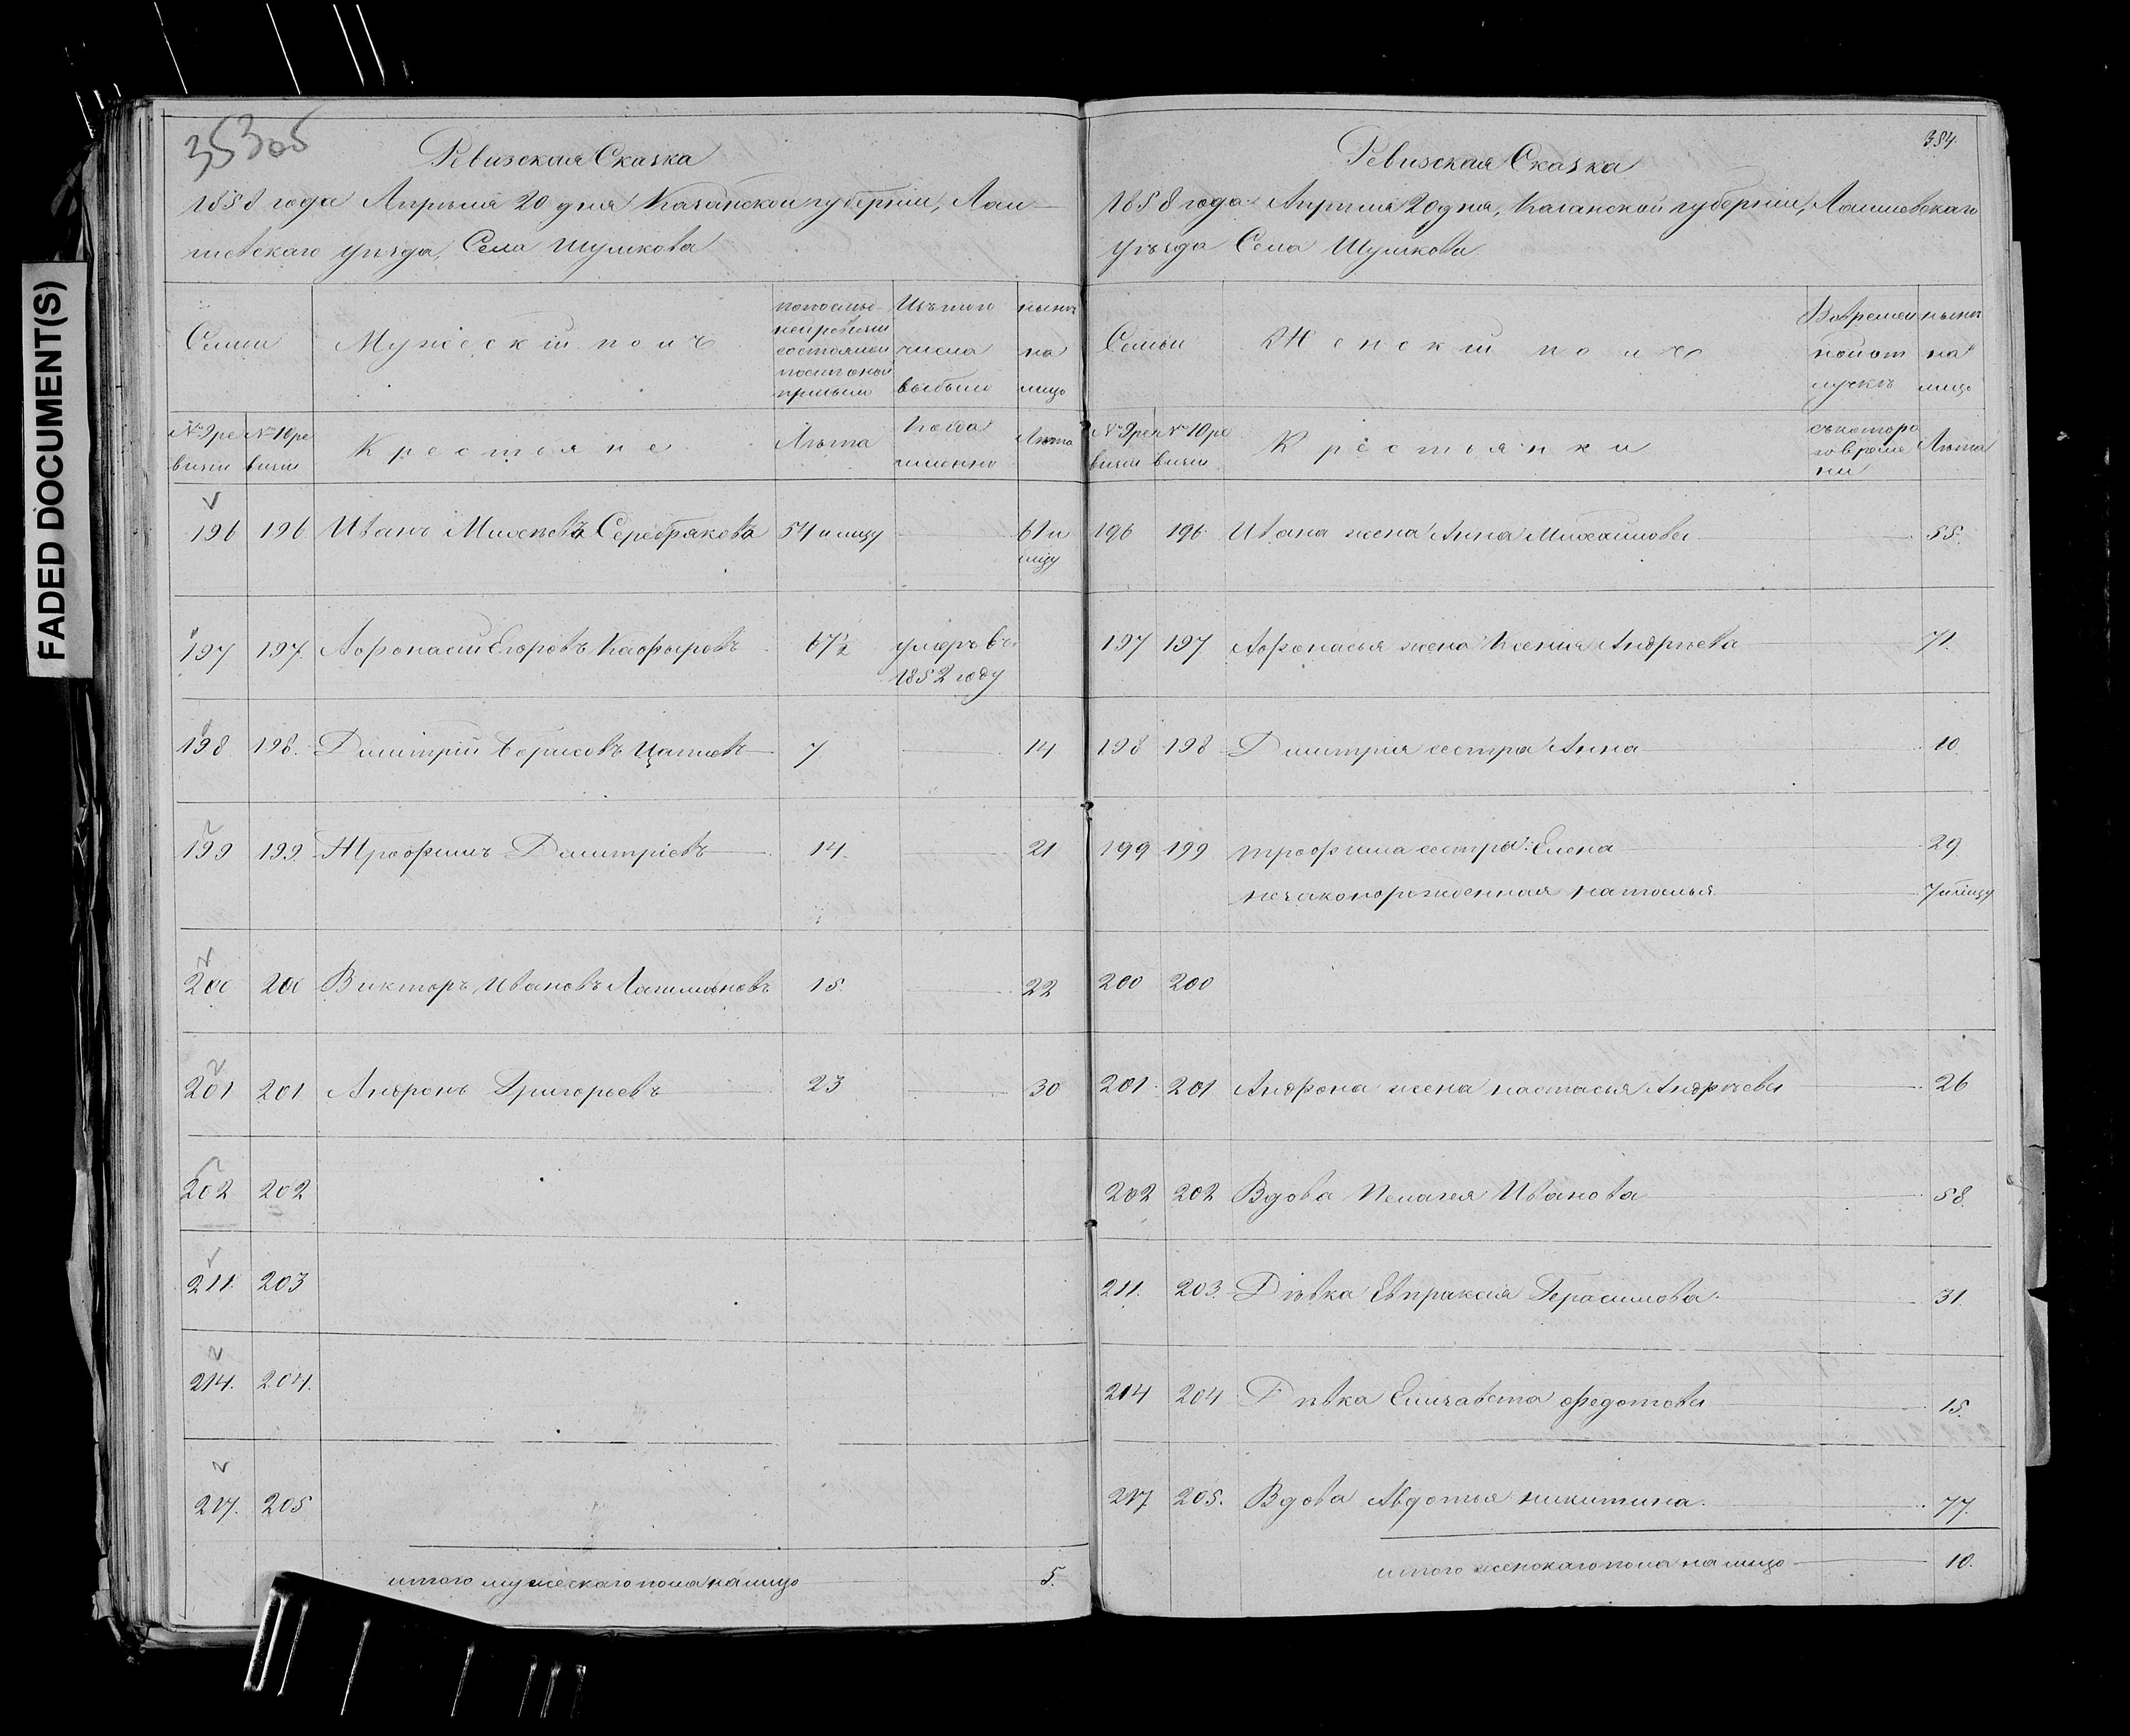 FADED DOCUMENT(S)
Ревизская Сказка
1858 года Апрѣля 20 дня Казанской губерніи, Лаи-
шевскаго уѣзда, Села Шумкова
Семьи
Мужескій полъ
по послѣд-
ней ревизіи
состояло и
послѣ оной
прибыло
Изъ того
числа
выбыло
нынѣ
на
лицо
№ 9 ре
визіи
№ 10 ре
визіи
Крестьяне
Лѣта
Когда
именно
Лѣта
196 196 Иванъ Михѣевъ Серебряковъ 54 61 и
197 197. Афонасій Егоровъ 67½ умеръ въ
1852 году
198 198. Димитрій Борисовъ 7 14
199 199. Трофимъ Димитріевъ 14. 21
200 200 Викторъ Ивановъ 15. 22
201 201 Андронъ Григорьевъ 23 30
202 202
211. 203
214. 204.
217. 205
итого мужескаго пола на лицо 5.
354.
Ревизская Сказка
1858 года Апрѣля 20 дня, Казанской губерніи, Лаишевскаго
уѣзда Села Шумкова
Семьи
Женскій полъ
Во времен
ной от
лучкѣ
нынѣ
на
лицо
№ 9 ре
визіи
№ 10 ре
визіи
Крестьянки
съ которо
го време
ни
Лѣта
196 196 Ивана жена Анна Михайлова 55.
197 197 Афонасья жена Ксенія Андрѣева 71.
198 198 Димитрія сестра Анна 10.
199 199 Трофима сестра Елена 29
незаконорожденная Наталья 7
200 200
201. 201 Андрона жена Настасья Андрѣева 26
202 202 Вдова Пелагея Иванова 58.
211. 203. Дѣвка Евпраксія Герасимова. 31.
214 204 Дѣвка Елизавета Федотова 15.
217 205. Вдова Авдотья Никитина. 77.
итого женскаго пола на лицо 10.